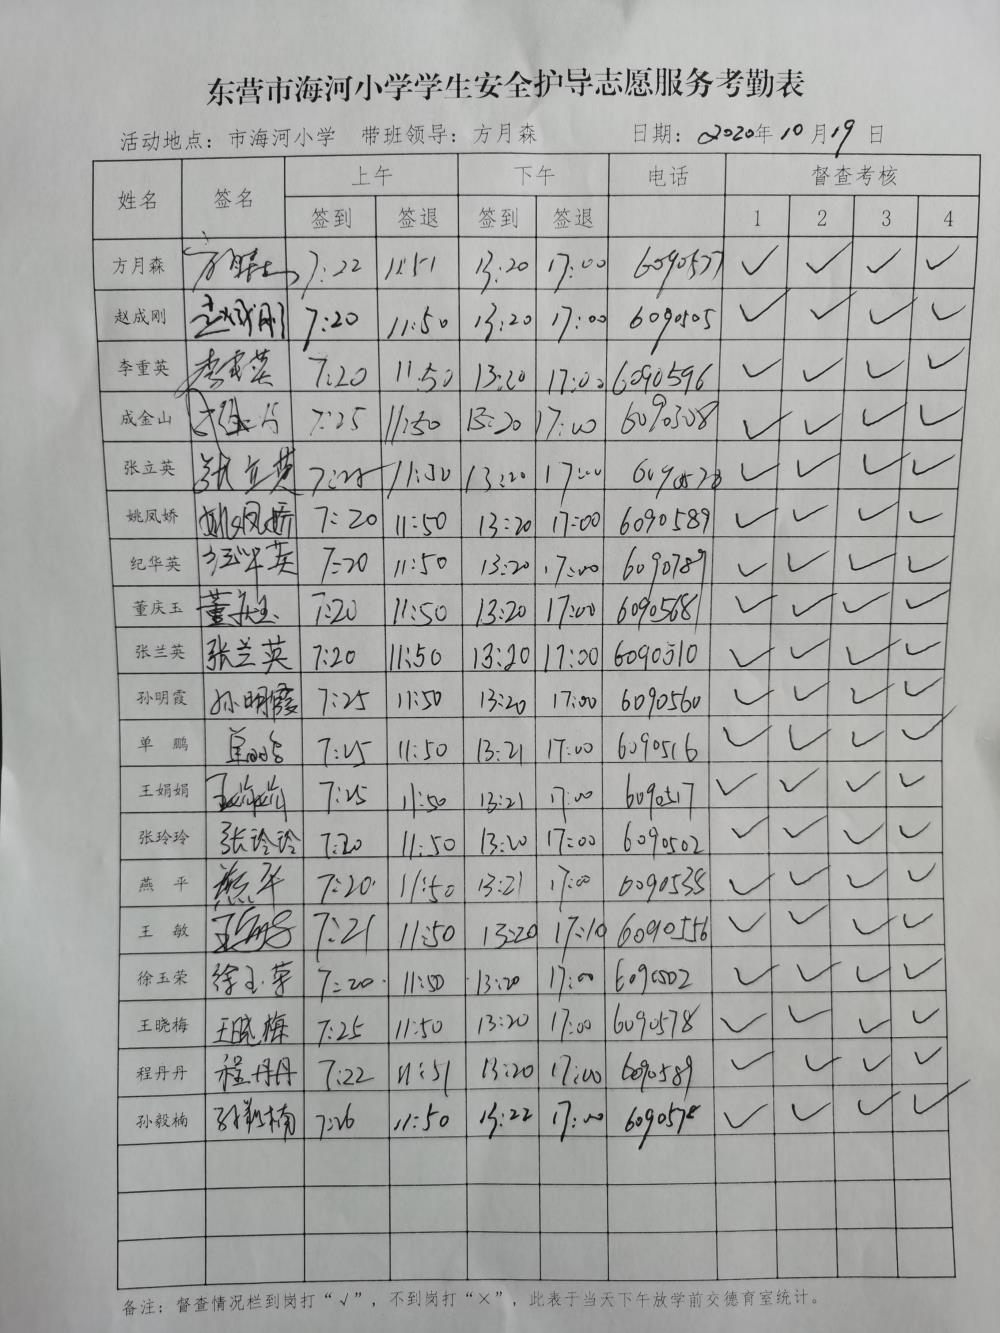 东营市海河小学学生安全护导志愿服务考勤表
活动地点：市海河小学 带班领导：方月森 日期：2020年10月19日
姓名 签名 上午 下午 电话 督查考核
签到 签退 签到 签退 1 2 3 4
方月森 7:22 11:51 13:20 17:00 6090577 ✓ ✓ ✓ ✓
赵成刚 赵成刚 7:20 11:50 13:20 17:00 6090505 ✓ ✓ ✓ ✓
李重英 李重英 7:20 11:50 13:20 17:00 6090596 ✓ ✓ ✓ ✓
成金山 7:25 11:50 13:20 17:00 6090308 ✓ ✓ ✓ ✓
张立英 张立英 11:50 13:20 17:00 ✓ ✓ ✓ ✓
姚凤娇 姚凤娇 7:20 11:50 13:20 17:00 6090589 ✓ ✓ ✓ ✓
纪华英 纪华英 7:20 11:50 13:20 17:00 6090789 ✓ ✓ ✓ ✓
董庆玉 董庆玉 7:20 11:50 13:20 17:00 6090568 ✓ ✓ ✓ ✓
张兰英 张兰英 7:20 11:50 13:20 17:00 6090510 ✓ ✓ ✓ ✓
孙明霞 孙明霞 7:25 11:50 13:20 17:00 6090560 ✓ ✓ ✓ ✓
单 鹏 单鹏 7:25 11:50 13:21 17:00 6090516 ✓ ✓ ✓ ✓
王娟娟 王娟娟 7:25 11:50 13:21 17:00 6090517 ✓ ✓ ✓ ✓
张玲玲 张玲玲 7:20 11:50 13:20 17:00 6090502 ✓ ✓ ✓ ✓
燕 平 燕平 7:20 11:50 13:21 17:00 6090535 ✓ ✓ ✓ ✓
王 敏 王敏 7:21 11:50 13:20 17:10 6090556 ✓ ✓ ✓ ✓
徐玉荣 徐玉荣 7:20 11:50 13:20 17:00 6090502 ✓ ✓ ✓ ✓
王晓梅 王晓梅 7:25 11:50 13:20 17:00 6090578 ✓ ✓ ✓ ✓
程丹丹 程丹丹 7:22 11:51 13:20 17:00 6090589 ✓ ✓ ✓ ✓
孙毅楠 孙毅楠 7:26 11:50 13:22 17:00 6090578 ✓ ✓ ✓ ✓
备注：督查情况栏到岗打“√”，不到岗打“×”，此表于当天下午放学前交德育室统计。